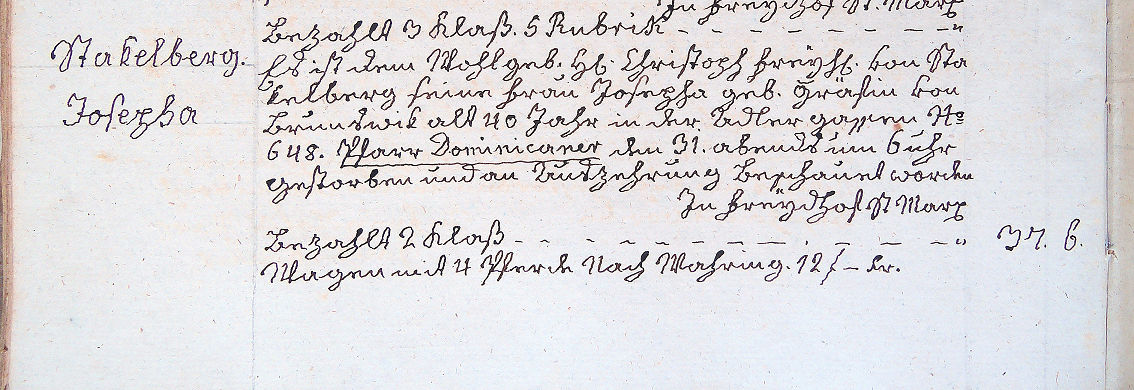 In Freydhof St. Marx
Bezahlt 3 Klaß. 5 Rubrik
Stakelberg.
Josepha
Es ist dem Wohlgeb. H. Christoph Freyh. von Sta
kelberg seine Frau Josepha geb. Gräfin von
Brunswik alt 40 Jahr in der Adler gassen No
648. Pfarr Dominicaner den 31. abends um 6 uhr
gestorben und an Auszehrung Beschauet worden
In Freydhof St Marx
Bezahlt 2 Klaß 37. 6.
Wagen mit 4 Pferde Nach Wahring. 12 f – Kr.